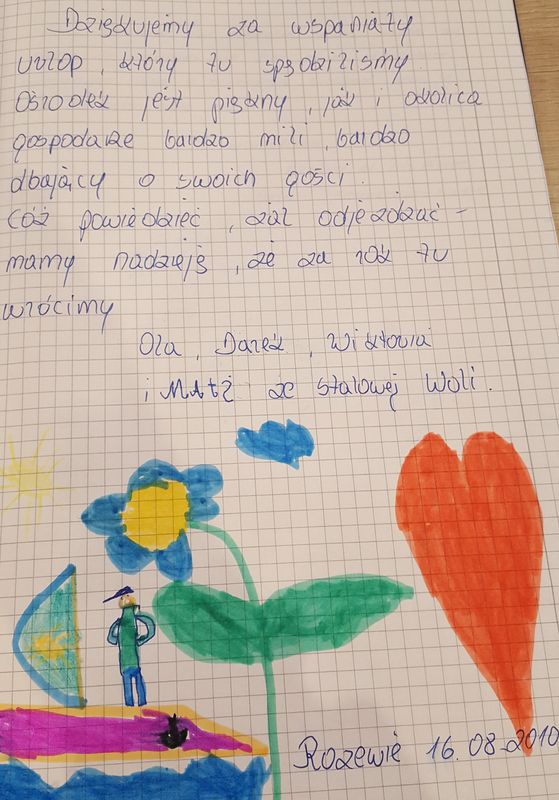 Dziękujemy za wspaniały
urlop, który tu spędziliśmy.
Ośrodek jest piękny, jak i okolica
gospodarze bardzo mili, bardzo
dbający o swoich gości.
Cóż powiedzieć, żal odjeżdżać -
mamy nadzieję, że za rok tu
wrócimy
Ola, Darek, Wiktoria
i ze Stalowej Woli.
Rozewie 16.08.2010